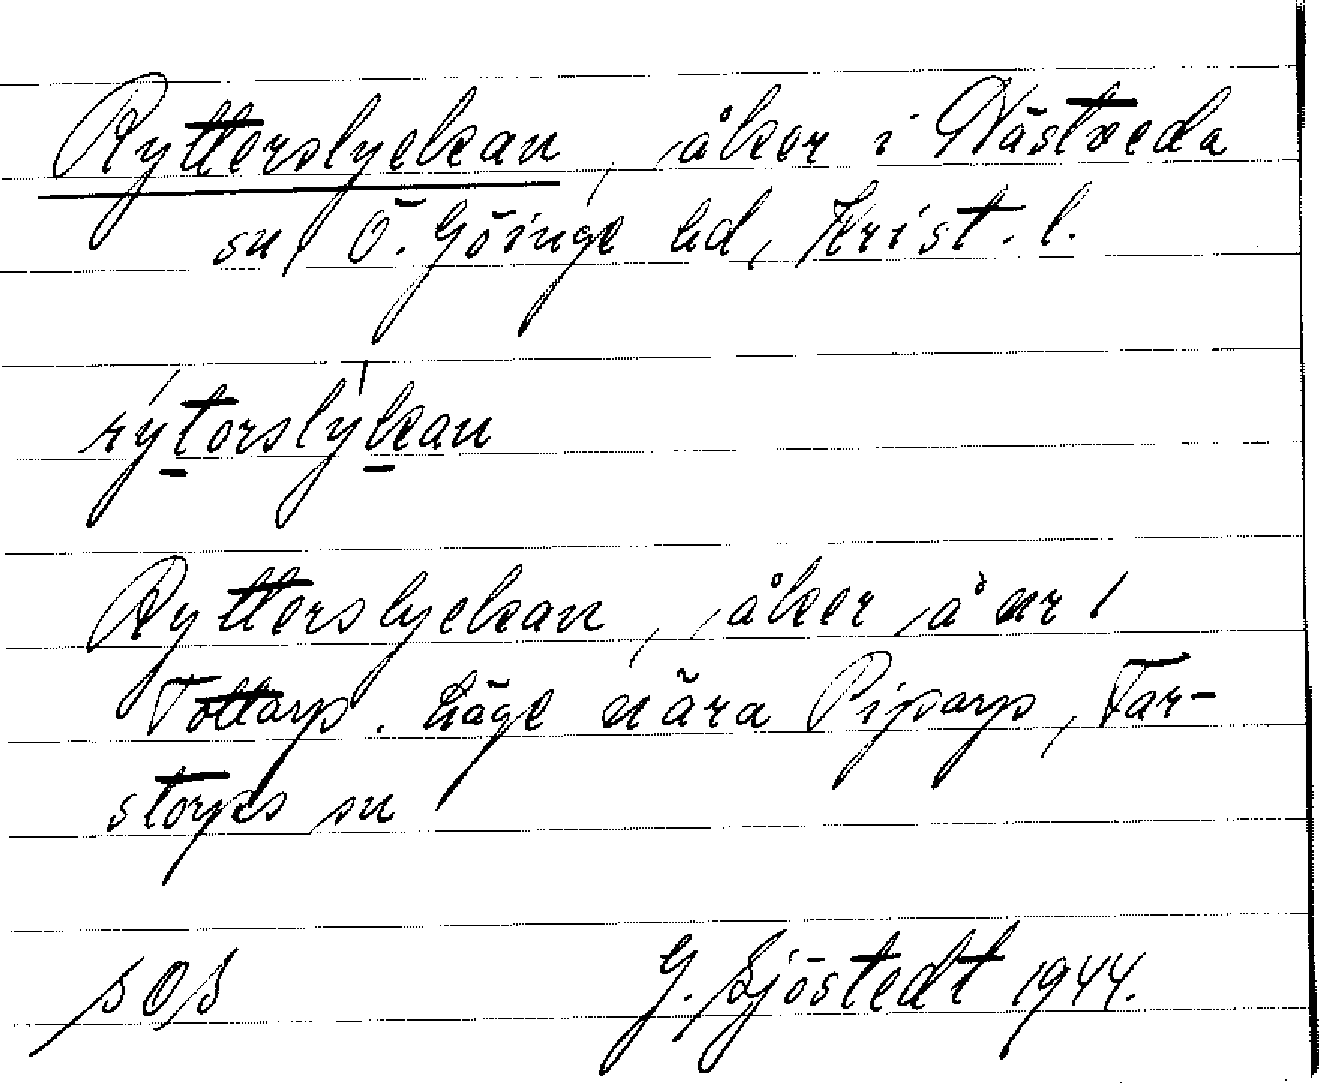 Ryttorslyckan, åker i Nästveda
sn, Ö. Göinge hd, Krist. l.
rýtorslýkan
Ryttorslyckan, åker å nr 1
Tottarp. Läge nära Piparp, Far-
storps sn
sos G. Sjöstedt 1944.